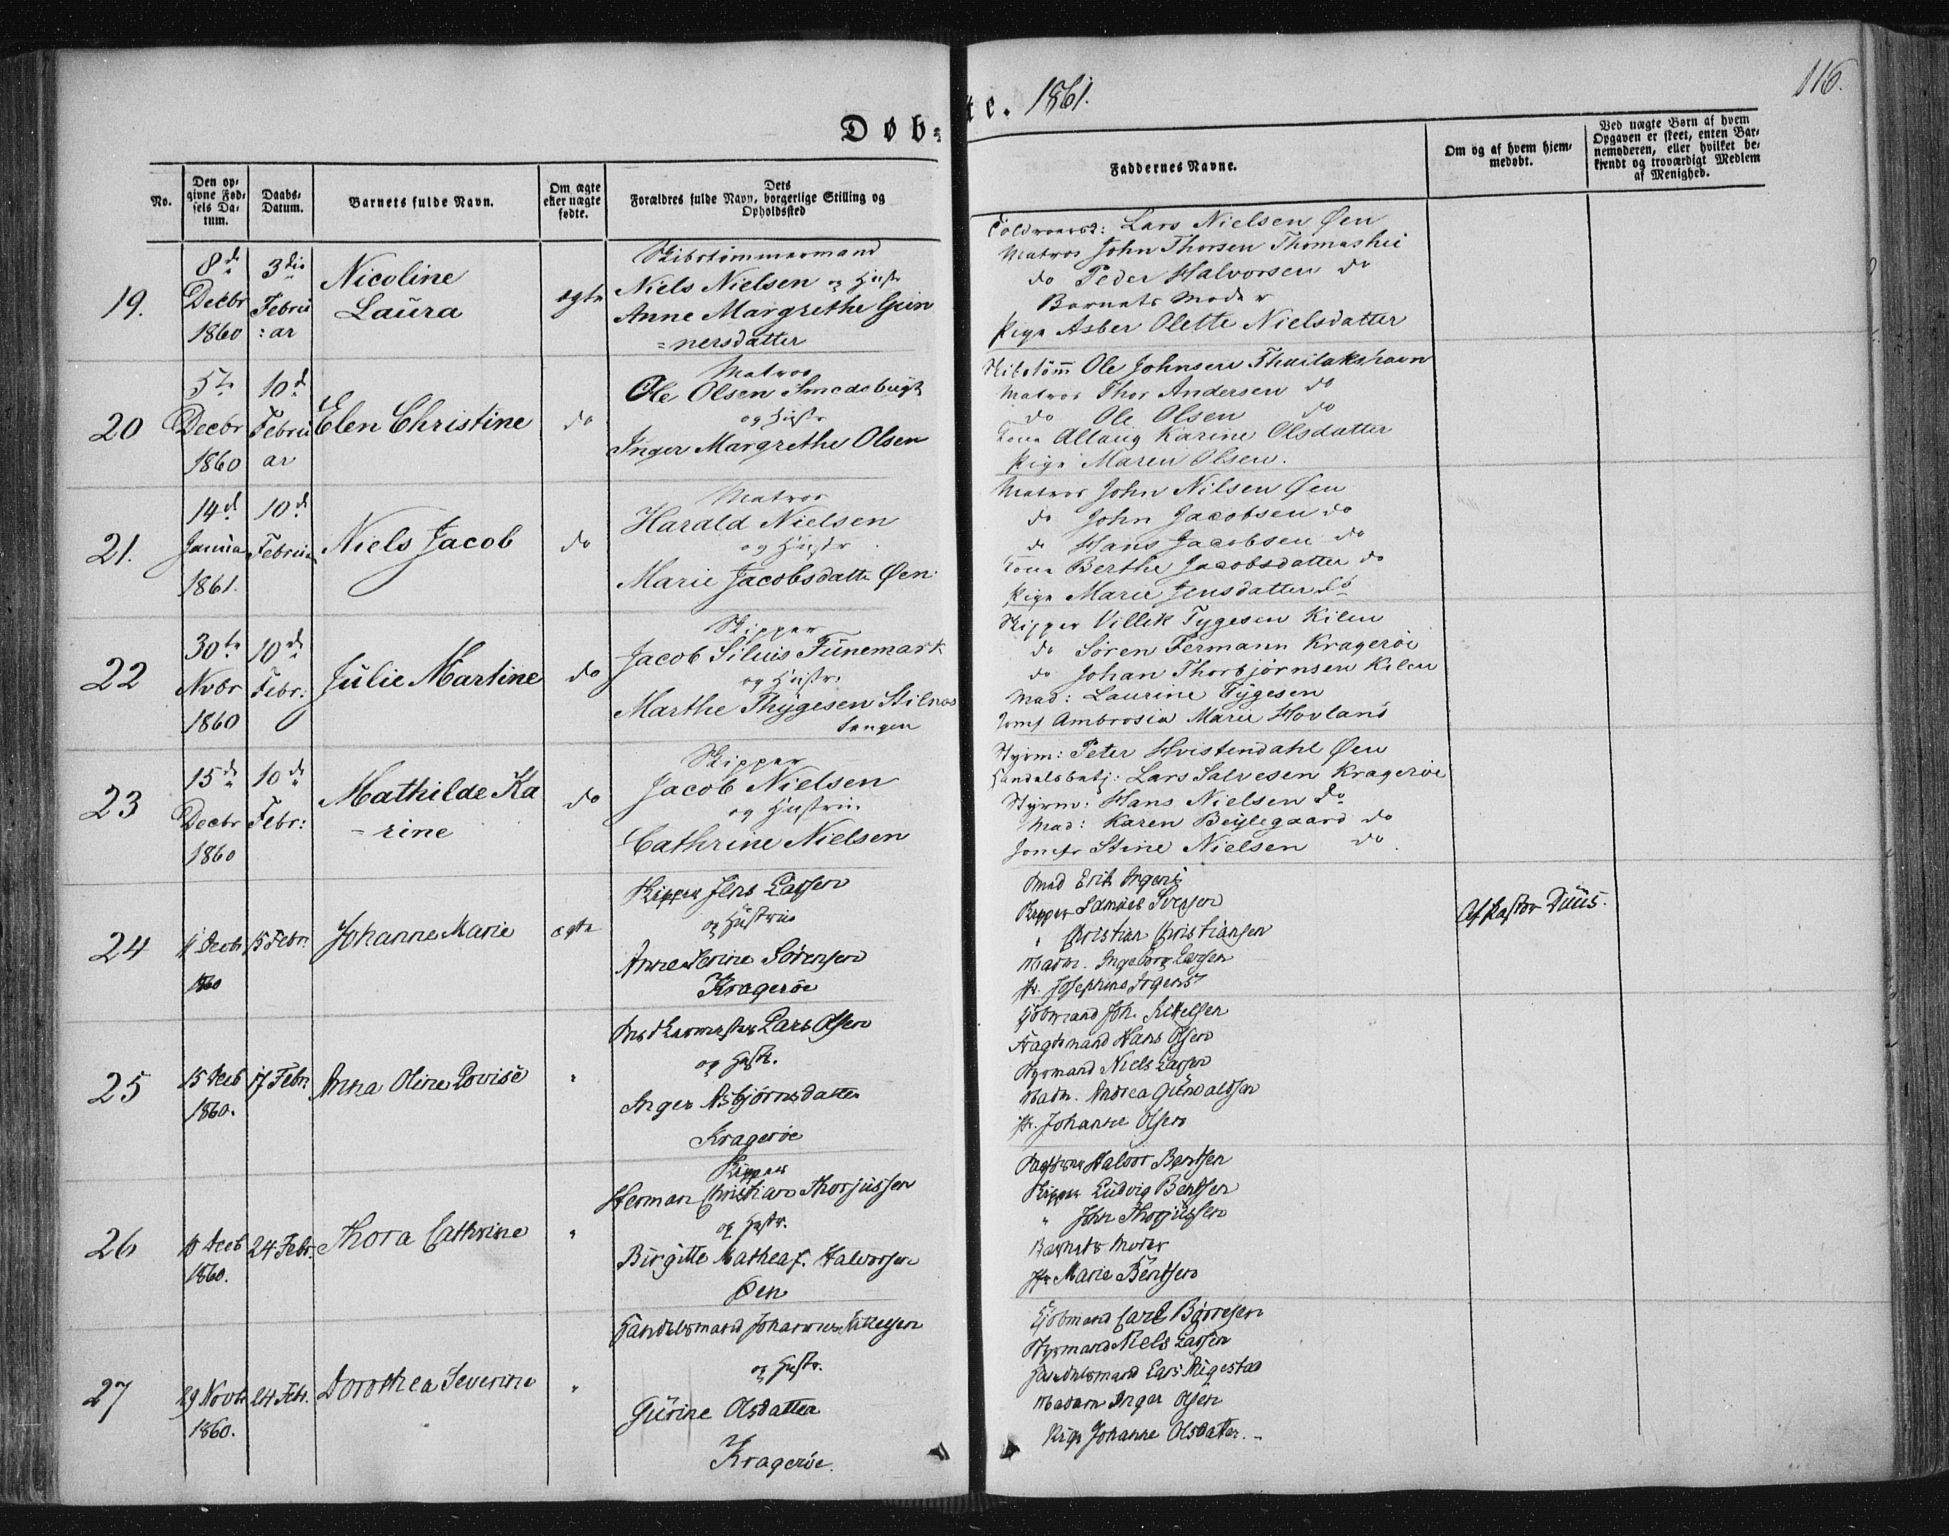 Døbte. 1861.
116.
No.
Den opgivne Fødsels Datum.
Daabs-Datum.
Barnets fulde Navn.
Om ægte eller uægte fødte.
Dets Forældres fulde Navn, borgerlige Stilling og Opholdsted
Faddernes Navne.
Om og af hvem hjemmedøbt.
Ved uægte Børn af hvem Opgaven er skeet, enten Barnemoderen, eller hvilket bekjendt og troværdigt Medlem af Menighed.
19.
8de Decbr 1860
3die Februar
Nicoline
Laura
ægte
Skibstømmermand
Niels Nielsen og Hustr
Anne Margrethe Gun
=nersdatter
Lars Nielsen Øen
Matros John Thorsen Thomashei
do Peder Halvorsen do
Barnets Moder
Pige Asber Olette Nielsdatter
20
5te Decbr 1860
10de Februar
Elen Christine
do
Matros
Ole Olsen Smedsbugt
og Hustr
Inger Margrethe Olsen
Skibstømm Ole Johnsen
Matros Thor Andersen do
do Ole Olsen do
Kone Allaug Karine Olsdatter
Pige Maren Olsen.
21.
14de Janua 1861.
10de Februa
Niels Jacob
do
Matros
Harald Nielsen
og Hustr
Marie Jacobsdattr Øen.
Matros John Nilsen Øen
do John Jacobsen do
do Hans Jacobsen do
Kone Berthe Jacobsdatter do
Pige Marie Jensdatter do
22
30te Nvbr 1860
10de Febr:
Julie Martine
do
Skipper
Jacob Silius Tünemark
og Hustr:
Marthe Thygesen Stilnes
tangen
Skipper Villik Tygesen Kilen
do Søren Fermann Kragerøe
do Johan Thorbjørnsen Kilen
Mad: Laurine Tygesen
Jomf Ambrosia Marie Hovland
23
15de Decbr 1860
10de Febr:
Mathilde Ka
=rine
do
Skipper
Jacob Nielsen
og Hustrue
Cathrine Nielsen
Styrm: Peter Hvistendahl Øen
Handelsbetj: Lars Salvesen Kragerøe
Styrm: Hans Nielsen do
Mad: Karen Beylegaard do
Jomfr Stine Nielsen do.
24
11 Decbr 1860
15 Febr.
Johanne Marie
ægte
Skipper Jens Larsen
og Hustrue
Anne Serine Sørensen
Kragerøe
Skipper Samuel Iversen
" Christian Christiansen
Madm. Ingeborg Larsen
Af Pastor Duus.
25
15 Decb 1860.
17 Febr.
Anna Oline Lovise
"
Lars Olsen
og Hustr.
Inger Asbjørnsdatter
Kragerøe
Kjøbmand Joh. Kittelsen
Fragtemand Hans Olsen
Styrmand Niels Larsen
Madm. Andrea Gunvaldsen
Jfr. Johanne Olsen
26
11 Decb 1860.
24 Febr.
Thora Cathrine
"
Skipper
Herman Christian Thorjussen
og Hustr.
Birgitte Mathea f. Halvorsen
Øen
Halvor Bentsen
Skipper Ludvig Bentsen
" John Thorjussen
Barnets Moder
Jfr Marie Bentsen
27
29 Novbr 1860.
24 Febr.
Dorothea Severine
"
Handelsmand Johannes Kittelsen
og Hustr.
Gurine Olsdatter
Kragerøe.
Kjøbmand Carl Børresen
Styrmand Niels Larsen
Handelsmand Lars Rigestad
Madam Inger Olsen
Pige Johanne Olsdatter.